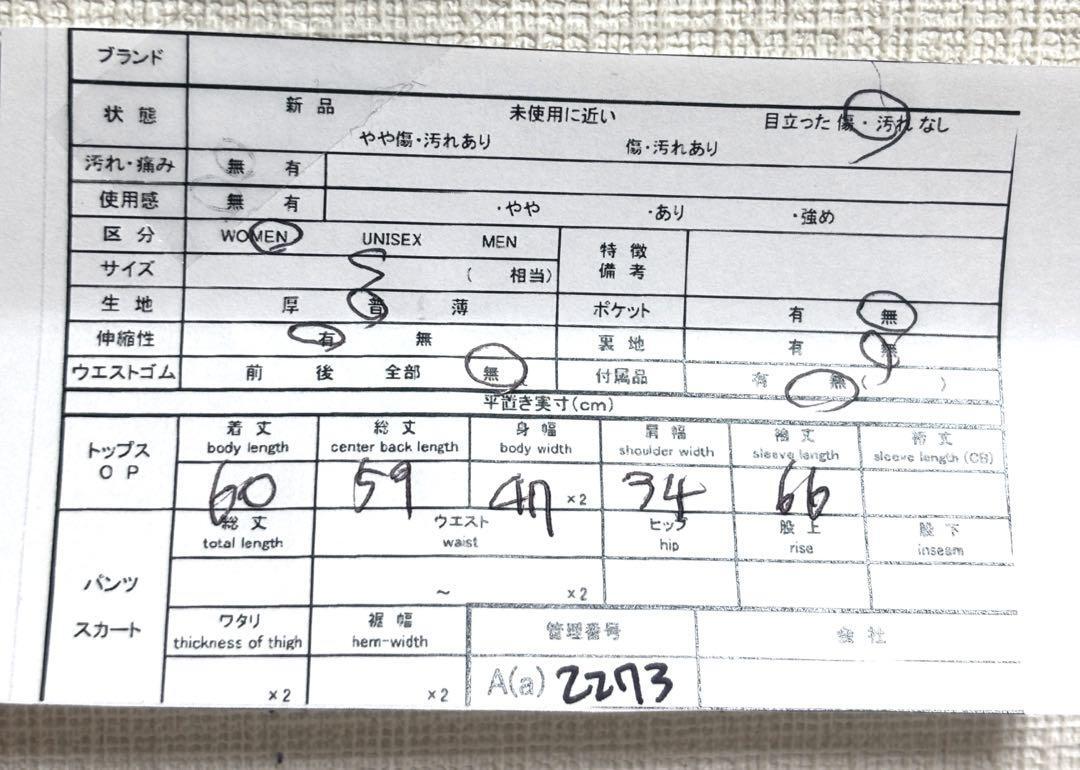 ブランド
状態 新品 未使用に近い 目立った傷・汚れなし
やや傷・汚れあり 傷・汚れあり
汚れ・痛み 無 有
使用感 無 有 ・やや ・あり ・強め
区分 WOMEN UNISEX MEN 特徴備考
サイズ S ( 相当)
生地 厚 普 薄 ポケット 有 無
伸縮性 有 無 裏地 有 無
ウエストゴム 前 後 全部 無 付属品 有 無 ( )
平置き実寸(cm)
トップス OP
着丈 総丈 身幅 肩幅 袖丈 裄丈
body length center back length body width shoulder width sleeve length sleeve length (CB)
60 59 47 ×2 34 66
パンツ スカート
総丈 ウエスト ヒップ 股上 股下
total length waist hip rise inseam
～ ×2
ワタリ 裾幅 管理番号 会社
thickness of thigh hem-width
×2 ×2 A(a) 2273